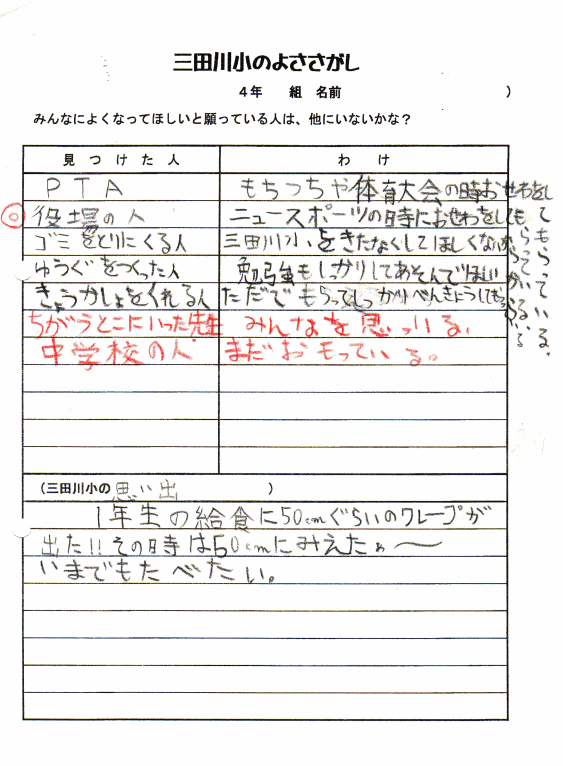 三田川小のよささがし
4年 組 名前 )
みんなによくなってほしいと願っている人は、他にいないかな?
見つけた人 わけ
PTA もちつちや体育大会の時おせわをしてもらっている。
役場の人 ニュースポーツの日時におせわをしてもらっている
ゴミをとりにくる人 三田川小をきたなくしてほしくないから
ゆうぐをつくった人 勉強もしっかりしてあそんでほしい
きょうかしょをくれる人 ただでもらってしっかりべんきょうしても
ちがうとこにいった先生 みんなを思っいる。
中学校の人 まだおもっている。
(三田川小の思い出 )
1年生の給食に50cmぐらいのクレープが
出た!!その日寺は50cmにみえたぁ〜
いまでもたべたい。